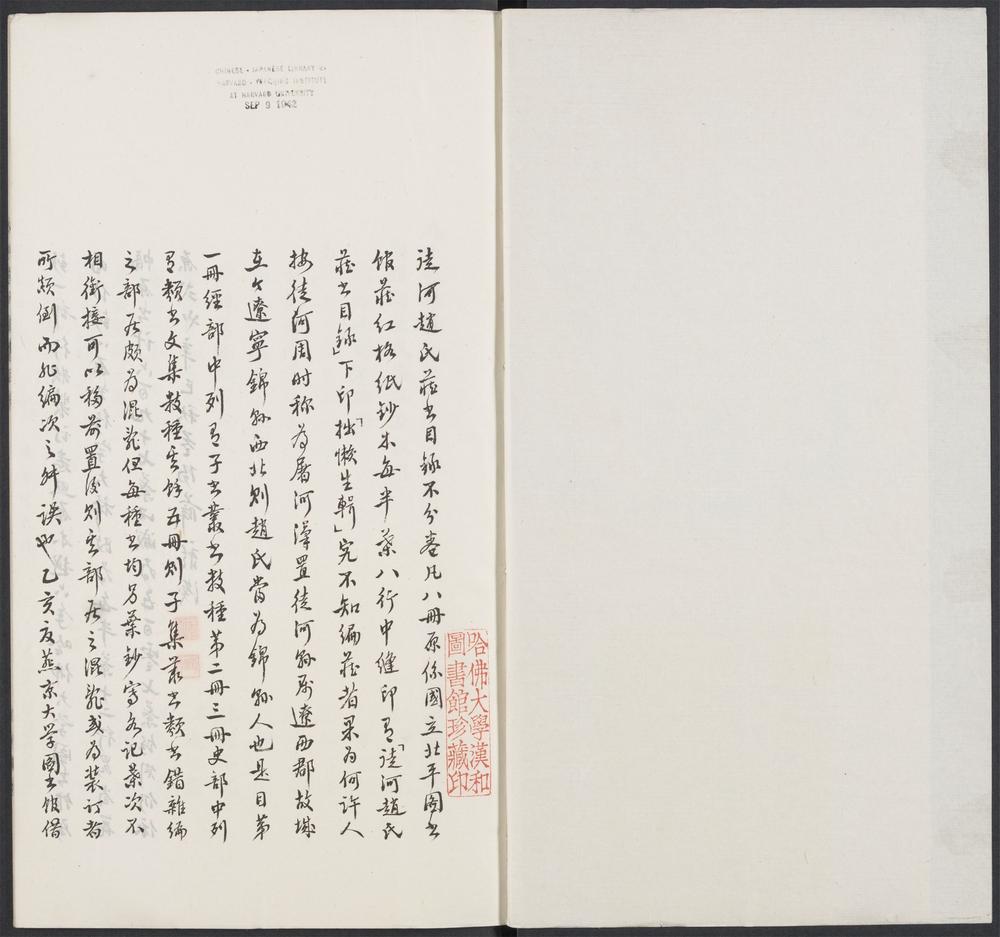 CHINESE - JAPANESE LIBRARY OF
HARVARD - YENCHING INSTITUTE
AT HARVARD UNIVERSITY
SEP 9 1942
哈佛大學漢和
圖書館珍藏印
徒河趙氏藏书目錄不分卷凡八冊原係國立北平圖书
館藏红格纸鈔本每半葉八行中縫印有「徒河趙氏
藏书目錄」下印「拙懶生輯」究不知編藏者果为何許人
按徒河周时称为屠河漢置徒河縣属遼西郡故城
在今遼寧錦縣西北则趙氏當为錦縣人也是目第
一冊經部中列有子书叢书数種第二冊三冊史部中列
有類书文集数種其餘五冊则子集叢书類书錯雜编
之部居颇为混亂但每種书均另葉鈔寫各记葉次不
相銜接可以移前置後则其部居之混亂或为装订者
所颠倒而非編次之舛误也乙亥夏燕京大学圖书館借